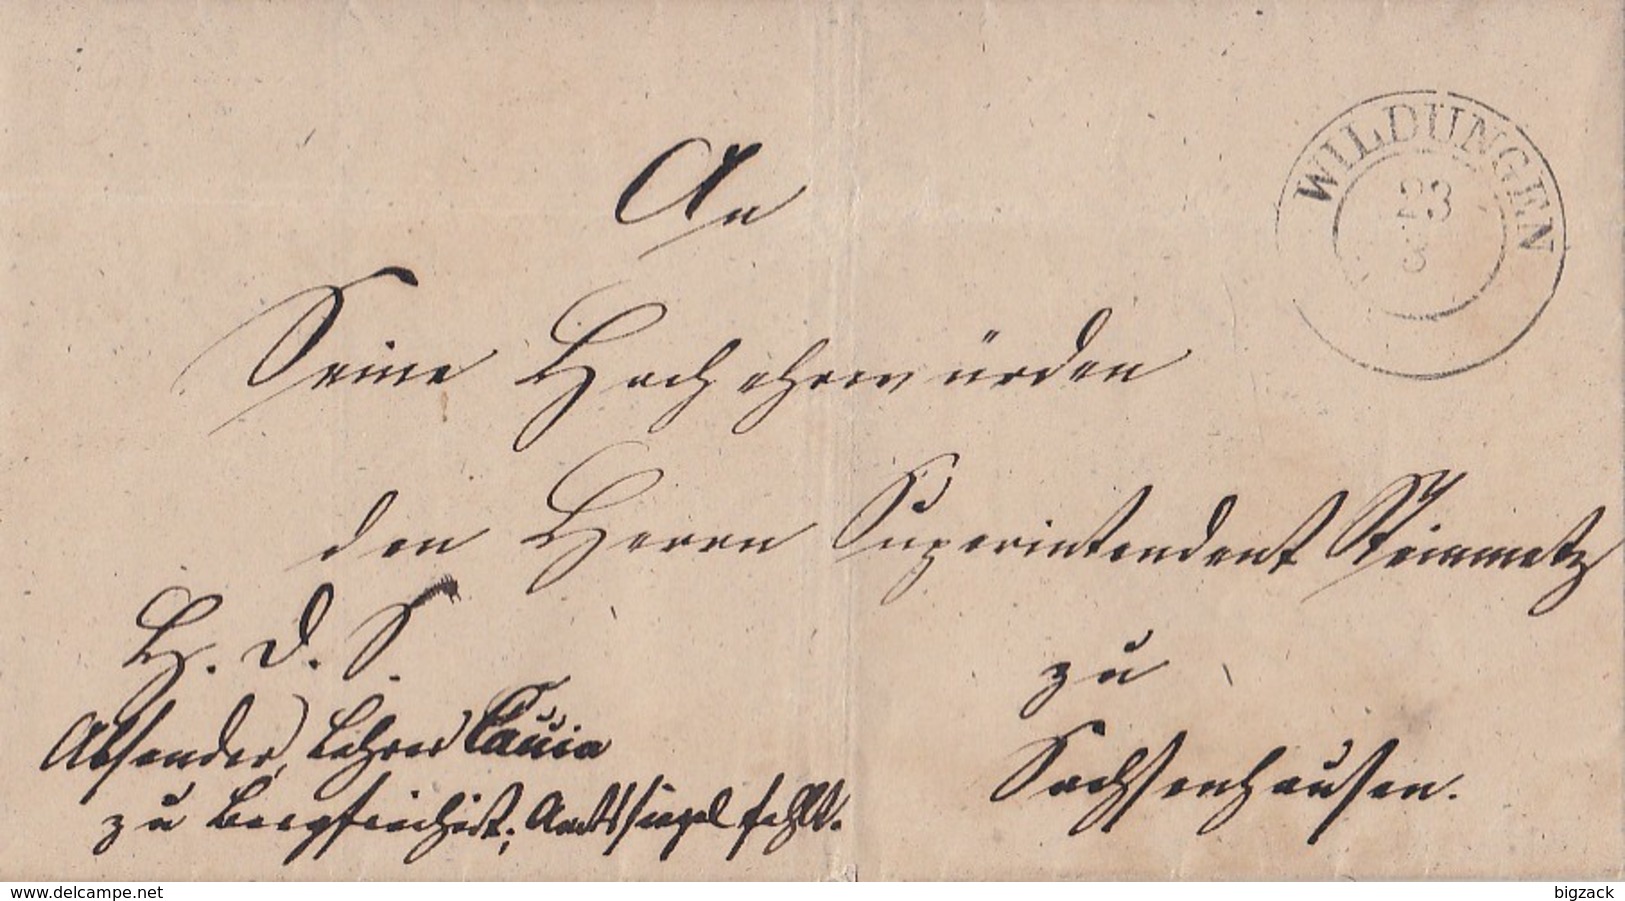 An
WILDUNGEN
23
3
Seine Hochehrwürden
den Herrn Superintendent Steinmetz
H. D. S.
zu
Absender, Lehrer
Sachsenhausen.
zu Bergfreiheit; Amtssiegel fehlt.
www.delcampe.net
bigzack